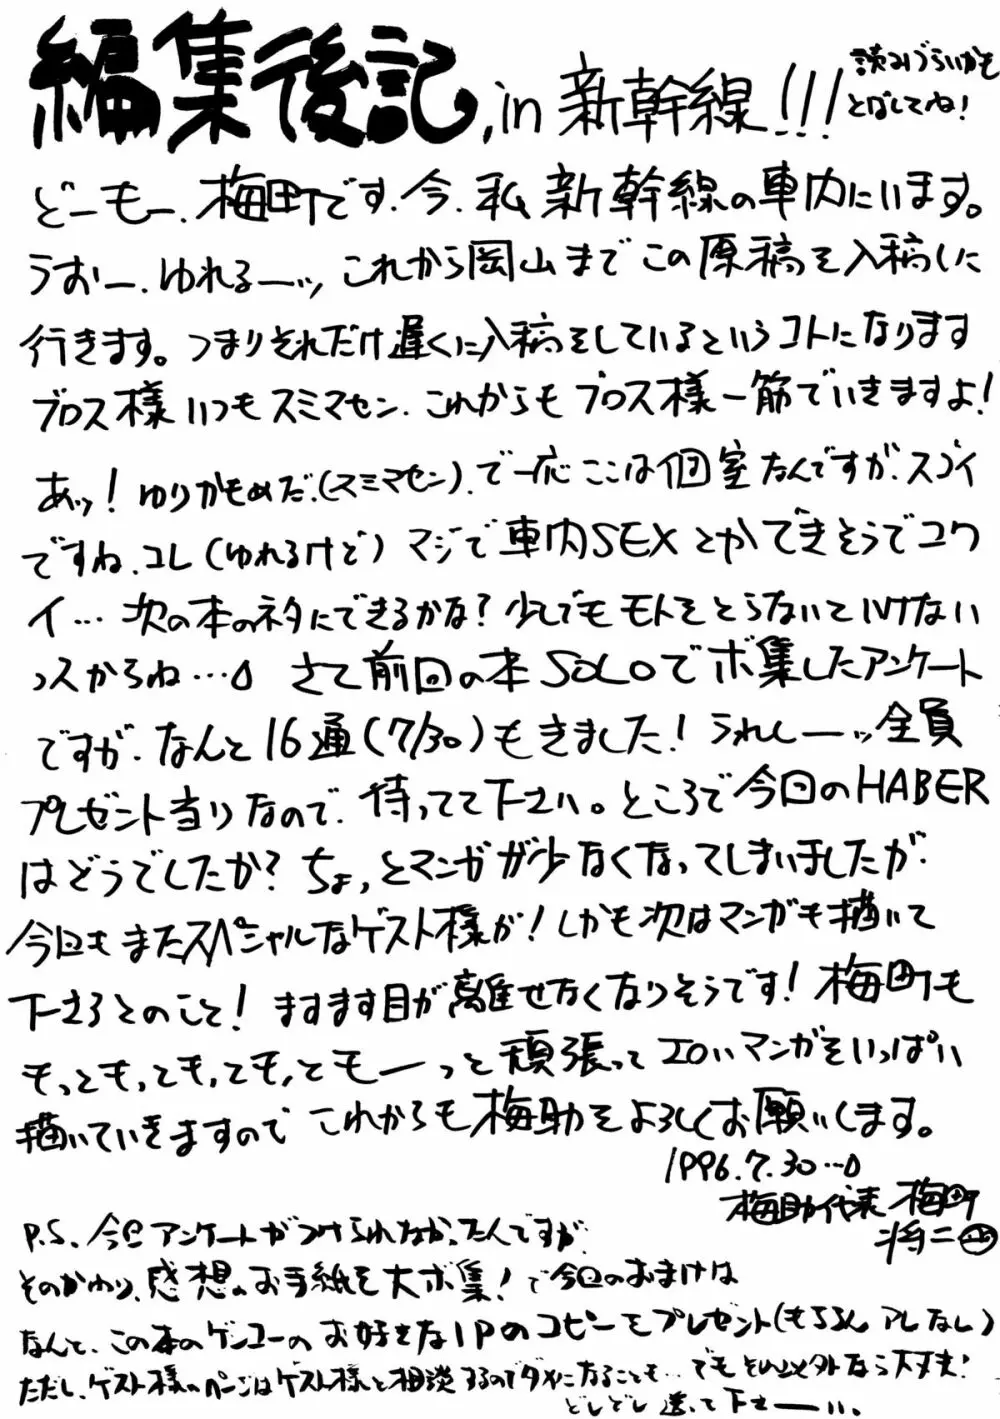 編集後記, in 新幹線!!!
読みづらいかも
とばしてね!
どーもー、梅町です。今、私新幹線の車内にいます。
うおー、ゆれるーッ これから岡山までこの原稿を入稿しに
行きます。つまりそれだけ遅くに入稿をしているというコトになります
ブロス様いつもスミマセン、これからもブロス様一筋でいきますよ!
あッ!ゆりかもめだ、(スミマセン)、で一応ここは個室なんですが、スゴイ
ですね、コレ(ゆれるけど) マジで車内SEXとかできそうでコワ
イ… 次の本のネタにできるかな?少しでもモトをとらないといけない
っスからね… さて前回の本SOLOでボ集したアンケート
ですが、なんと16通(7/30)もきました!うれしーッ全員
プレゼント当りなので、待ってて下さい。ところで今回のHABER
はどうでしたか?ちょっとマンガが少なくなってしまいましたが、
今回もまたスペシャルなゲスト様が!しかも次はマンガも描いて
下さるとのこと!ますます目が離せなくなりそうです!梅町も
もっともっとも、とも、ともーっと頑張ってエロいマンガをいっぱい
描いていきますので これからも梅助をよろしくお願いします。
1996.7.30…
梅助代表 梅町
将二
P.S. 今回アンケートがつけられなかったんですが、
そのかわり、感想のお手紙を大ボ集!で今回のおまけは
なんと、この本のゲンコーのお好きな1Pのコピーをプレゼント(もちろんアレなし)
ただし、ゲスト様のページはゲスト様と相談するのでダメになることも…でもそれ以外なら大丈夫!
どしどし送って下さーい。